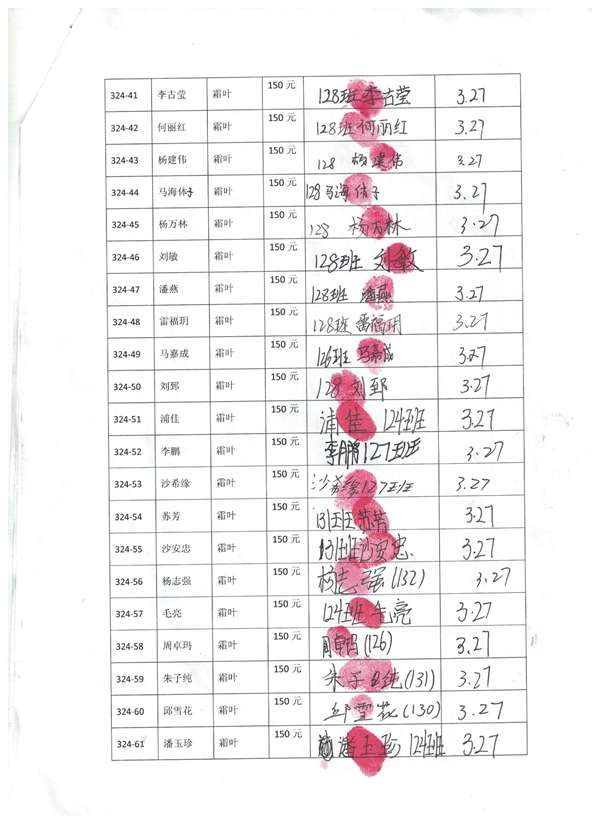 324-41 李古莹 霜叶 150 元 128班 李古莹 3.27
324-42 何丽红 霜叶 150 元 128班 何丽红 3.27
324-43 杨建伟 霜叶 150 元 128 杨建伟 3.27
324-44 马海休子 霜叶 150 元 128 马海休子 3.27
324-45 杨万林 霜叶 150 元 128 杨万林 3.27
324-46 刘敏 霜叶 150 元 128班 刘敏 3.27
324-47 潘燕 霜叶 150 元 128班 潘燕 3.27
324-48 雷福玥 霜叶 150 元 128班 雷福玥 3.27
324-49 马嘉成 霜叶 150 元 126班 马嘉成 3.27
324-50 刘郅 霜叶 150 元 128 刘郅 3.27
324-51 浦佳 霜叶 150 元 浦佳 124班 3.27
324-52 李鹏 霜叶 150 元 李鹏 127班 3.27
324-53 沙希缘 霜叶 150 元 沙希缘 127班 3.27
324-54 苏芳 霜叶 150 元 131班 苏芳 3.27
324-55 沙安忠 霜叶 150 元 131班 沙安忠 3.27
324-56 杨志强 霜叶 150 元 杨志强 (132) 3.27
324-57 毛亮 霜叶 150 元 124班 毛亮 3.27
324-58 周卓玛 霜叶 150 元 周卓玛 (126) 3.27
324-59 朱子纯 霜叶 150 元 朱子纯 (131) 3.27
324-60 邱雪花 霜叶 150 元 邱雪花 (130) 3.27
324-61 潘玉珍 霜叶 150 元 潘玉珍 124班 3.27